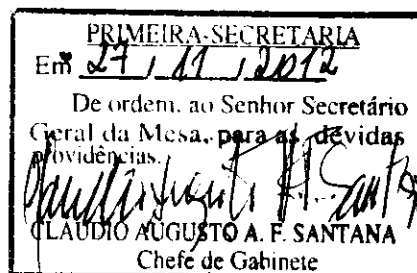 PRIMEIRA-SECRETARIA
Em 27 / 11 / 2012
De ordem, ao Senhor Secretário
Geral da Mesa, para as devidas
providências.
CLÁUDIO AUGUSTO A. F. SANTANA
Chefe de Gabinete